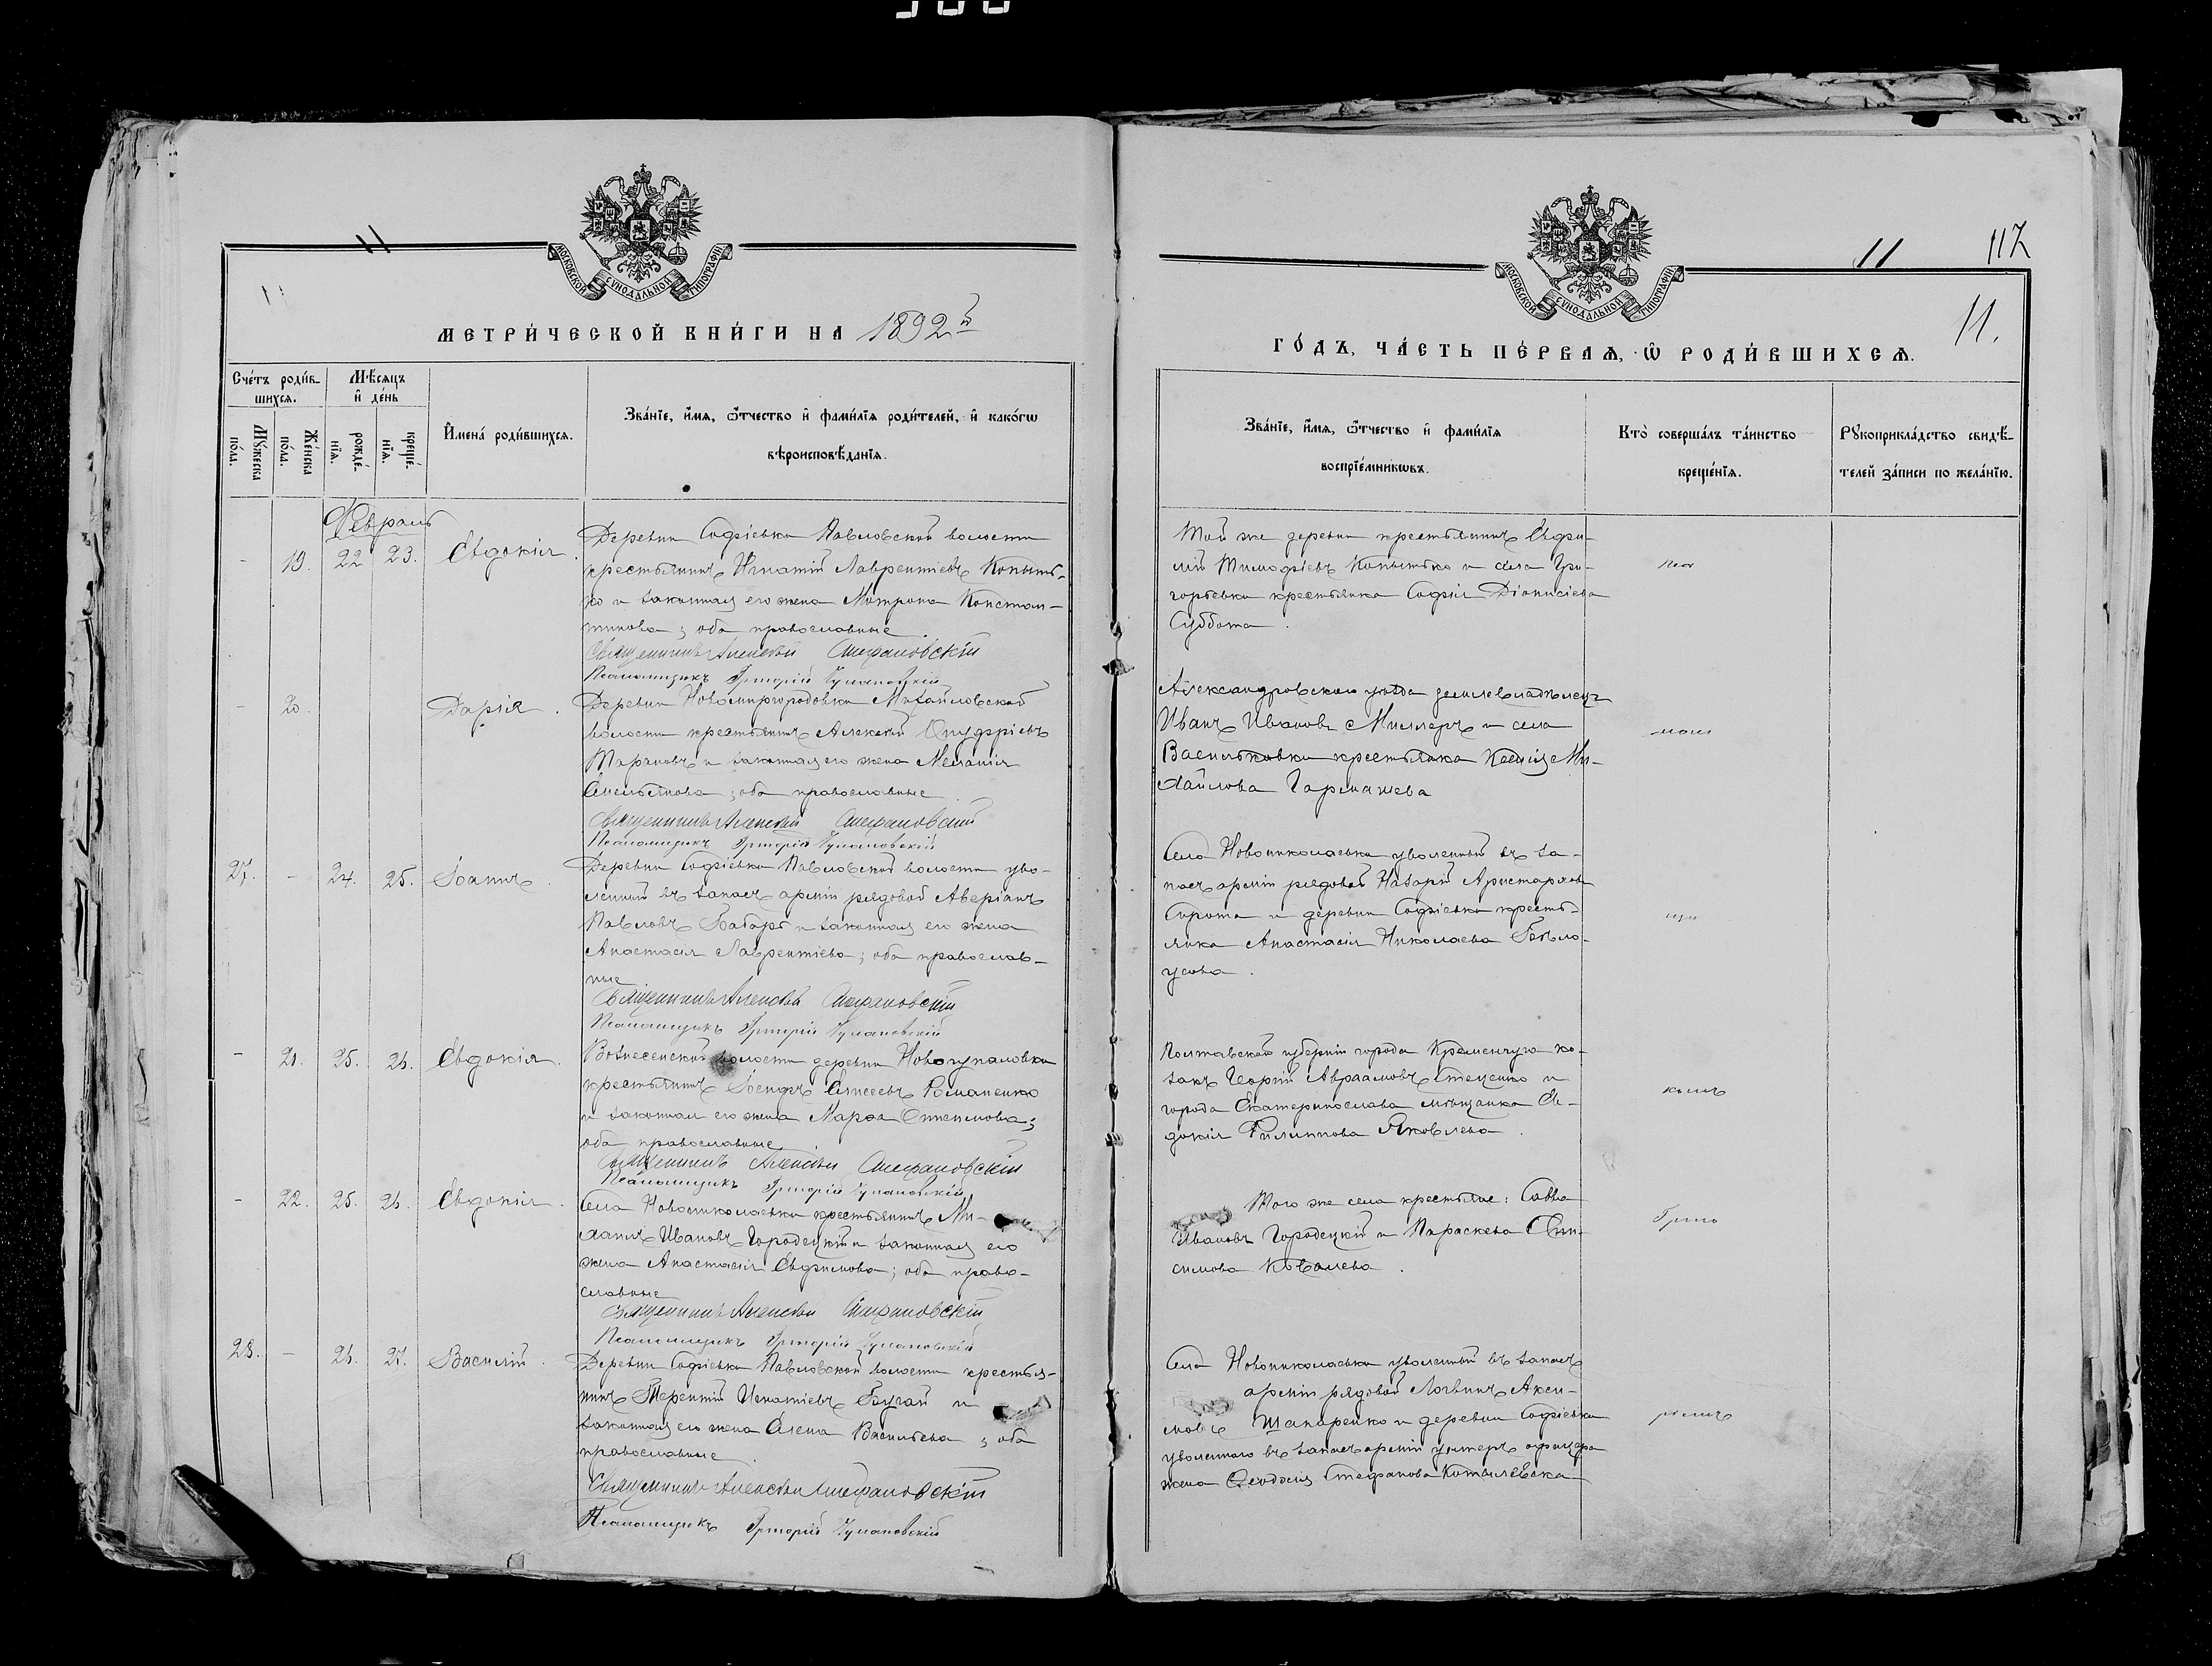 11
МОСКОВСКОЙ СУНОДАЛЬНОЙ ТИПОГРАФІИ
МЕТРИ́ЧЕСКОЙ КНИ́ГИ НА 1892 й
Сче́тъ роди́в-
шихся.
Мѣ́сяцъ
и҆ де́нь
Мꙋ́жеска
по́ла.
Же́нска
по́ла.
рожде́-
нїя.
креще́-
нїя.
И҆мена̀ роди́вшихся.
Зва́нїе, и҆́мя, ѻ҆́тчество и҆ фами́лїя роди́телей, и҆ како́гѡ
вѣроисповѣ́данїя.
Февраль
- 19. 22 23. Евдокія.
Деревни Софіевки Павловской волости
крестьянинъ Игнатій Лаврентіевъ Копыть-
ко и законная его жена Матрона Констан-
тинова; оба православные.
Священникъ Алексѣй Стефановскій
Псаломщикъ Григорій
- 20. Дарія.
Деревни Новомиргородовки Михайловской
волости крестьянинъ Алексѣй Онуфріевъ
Тарановъ и законная его жена Меланія
Емельянова; оба православные.
Священникъ Алексѣй Стефановскій
Псаломщикъ Григорій
27. - 24. 25. Іоаннъ.
Деревни Софіевки Павловской волости уво-
ленный въ запасъ арміи рядовой Аверіанъ
Павловъ и законная его жена
Анастасія Лаврентіева; оба православ-
ные
Священникъ Алексѣй Стефановскій
Псаломщикъ Григорій
- 21. 25. 26. Евдокія.
Вознесенской волости деревни Новогупаловки
крестьянинъ Іосифъ Елисеевъ Романенко
и законная его жена Марѳа Онисимова;
оба православные
Священникъ Алексѣй Стефановскій
Псаломщикъ Григорій
- 22. 25. 26. Евдокія.
Села Новониколаевки крестьянинъ Ми-
хаилъ Ивановъ Городецкій и законная его
жена Анастасія Евфимова; оба право-
славные
Священникъ Алексѣй Стефановскій
Псаломщикъ Григорій
28. - 26. 27. Василій.
Деревни Софіевки Павловской волости крестья-
нинъ Терентій Игнатіевъ Бугай и
законная его жена Елена Васильева; оба
православные.
Священникъ Алексѣй Стефановскій
Псаломщикъ Григорій
11 117
11.
МОСКОВСКОЙ СУНОДАЛЬНОЙ ТИПОГРАФІИ
ГО́ДЪ, ЧА́СТЬ ПЕ́РВАЯ, Ѡ҆ РОДИ́ВШИХСЯ.
Зва́нїе, и҆́мя, ѻ҆́тчество и҆ фами́лїя
воспрїе́мникѡвъ.
Кто̀ соверша́лъ та́инство
креще́нїя.
Рꙋкоприкла́дство свидѣ́-
телей за́писи по жела́нїю.
Той же деревни крестьянинъ
Тимофіевъ Копытько и села Гри-
горьевки крестьянка Софія Діонисіева
Суббота.
Александровскаго уѣзда землевладѣлецъ
Иванъ Ивановъ Миллеръ и села
Васильковки крестьянка Ксенія Ми-
хайлова Гармашева
Села Новониколаевки уволенный въ за-
пасъ арміи рядовой Назарій Аристарховъ
Сирота и деревни Софіевки кресть-
янка Анастасія Николаева Бѣло-
усова.
Полтавской губерніи города Кременчуга ко-
закъ Георгій Авраамовъ Стеценко и
города Екатеринослава мѣщанка Ев-
докія Филиппова Яковлева.
Того же села крестьяне: Савва
Ивановъ Городецкій и Параскева Они-
симова Ковалева.
Села Новониколаевки уволенный въ запасъ
арміи рядовой Логвинъ Аки-
мовъ Шапаренко и деревни Софіевки
уволеннаго въ запасъ арміи унтеръ офицера
жена Ѳеодосія Стефанова Котляревская